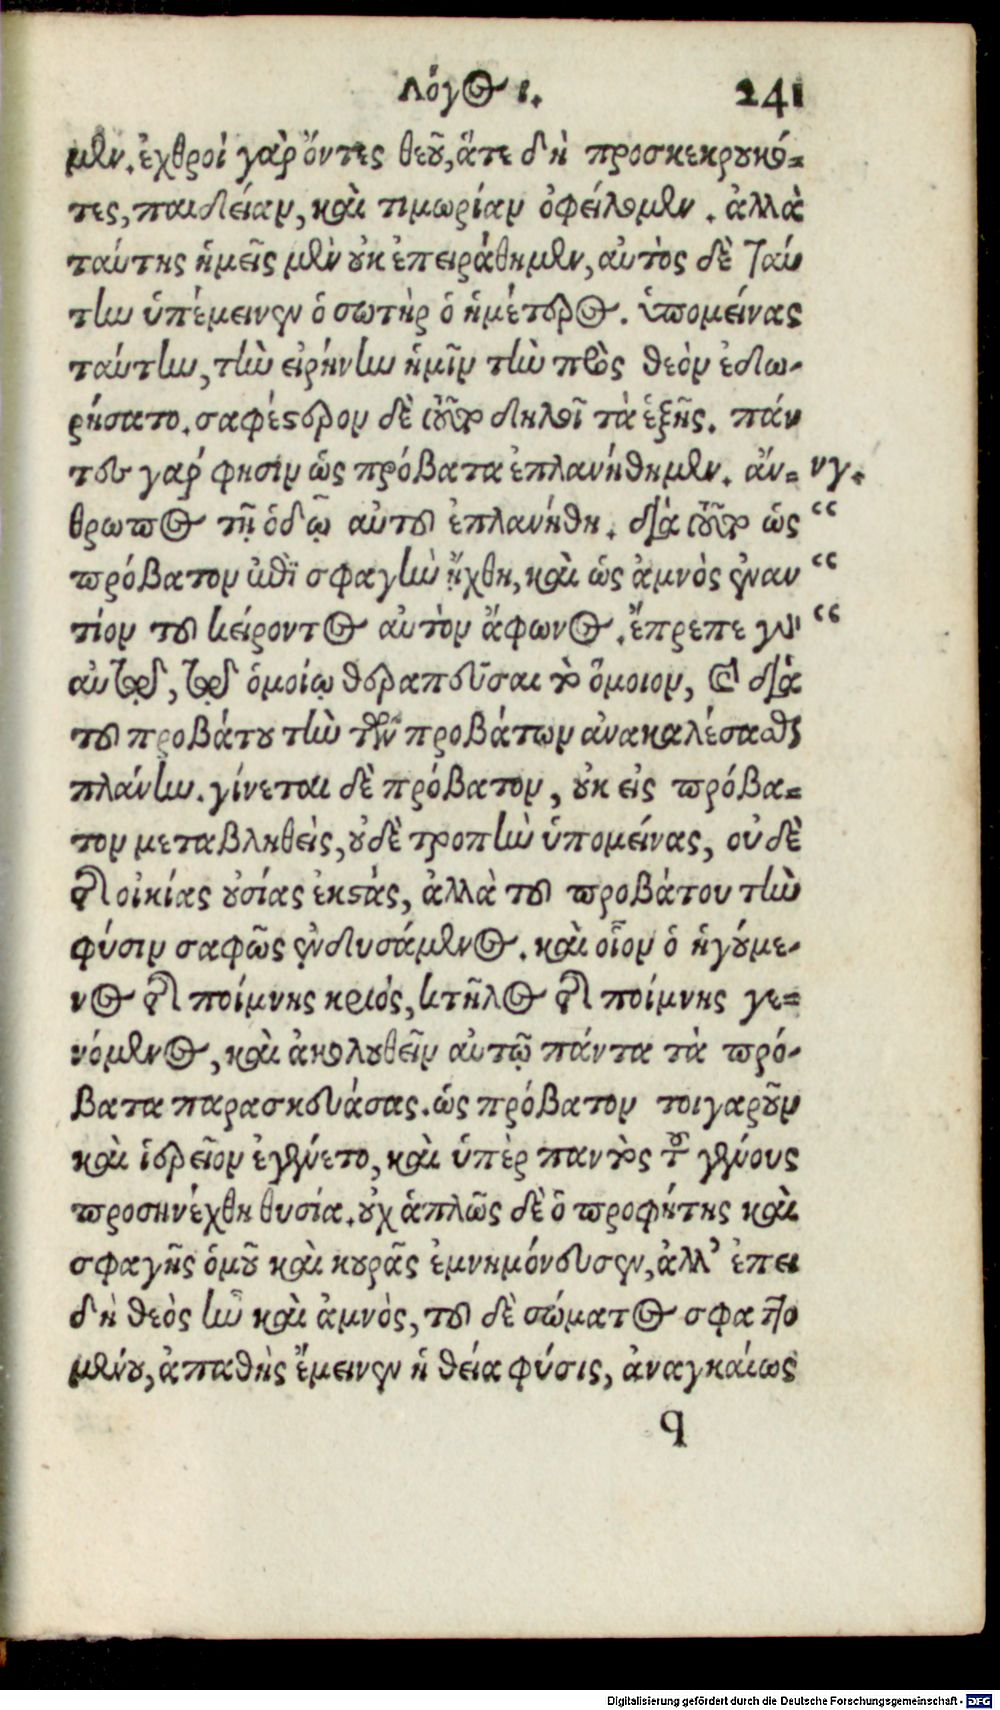 Λόγος ι. 241
μεν. ἐχθροὶ γὰρ ὄντες θεοῦ, ἅτε δὴ προσκεκρουκό-
τες, παιδείαν, καὶ τιμωρίαν ὀφείλομεν. ἀλλὰ
ταύτης ἡμεῖς μὲν οὐκ ἐπειράθημεν, αὐτὸς δὲ ταύ
την ὑπέμεινεν ὁ σωτὴρ ὁ ἡμέτερος. ὑπομείνας
ταύτην, τὴν εἰρήνην ἡμῖν τὴν πρὸς θεὸν ἐδω-
ρήσατο. σαφέστερον δὲ τοῦτο δηλοῖ τὰ ἑξῆς. πάν
τες γάρ φησιν ὡς πρόβατα ἐπλανήθημεν. ἄν- νγ.
θρωπος τῇ ὁδῷ αὐτοῦ ἐπλανήθη. διὰ τοῦτο ὡς “
πρόβατον ἐπὶ σφαγὴν ἤχθη, καὶ ὡς ἀμνὸς ἐναν “
τίον τοῦ κείροντος αὐτὸν ἄφωνος. ἔπρεπε γὰρ “
αὐτῷ, τῷ ὁμοίῳ θεραπεῦσαι τὸ ὅμοιον, καὶ διὰ
τοῦ προβάτου τὴν τῶν προβάτων ἀνακαλέσασθαι
πλάνην. γίνεται δὲ πρόβατον, οὐκ εἰς πρόβα-
τον μεταβληθεὶς, οὐδὲ τροπὴν ὑπομείνας, οὐδὲ
τῆς οἰκίας οὐσίας ἐκστάς, ἀλλὰ τοῦ προβάτου τὴν
φύσιν σαφῶς ἐνδυσάμενος. καὶ οἷον ὁ ἡγούμε-
νος τῆς ποίμνης κριός, κτῆλος τῆς ποίμνης γε-
νόμενος, καὶ ἀκολουθεῖν αὐτῷ πάντα τὰ πρό-
βατα παρασκευάσας. ὡς πρόβατον τοιγαροῦν
καὶ ἱερεῖον ἐγένετο, καὶ ὑπὲρ παντὸς τοῦ γένους
προσηνέχθη θυσία. οὐχ ἁπλῶς δὲ ὁ προφήτης καὶ
σφαγῆς ὁμοῦ καὶ κουρᾶς ἐμνημόνευσεν, ἀλλ’ ἐπει
δὴ θεὸς ἦν καὶ ἀμνὸς, τοῦ δὲ σώματος σφαττο
μένου, ἀπαθὴς ἔμεινεν ἡ θεία φύσις, ἀναγκαίως
q
Digitalisierung gefördert durch die Deutsche Forschungsgemeinschaft - DFG